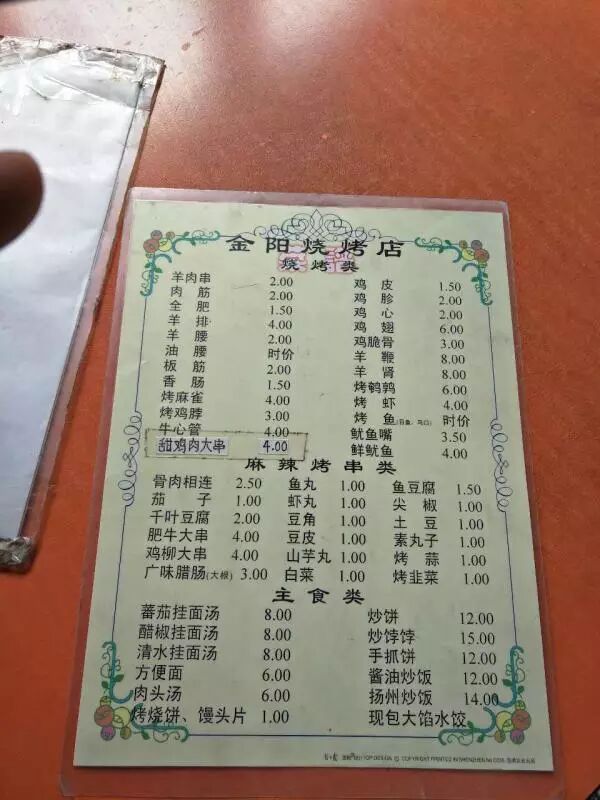 金阳烧烤店
烧烤类
羊肉串 2.00
肉筋 2.00
全肥 1.50
羊排 4.00
羊腰 2.00
油腰 时价
板筋 2.00
香肠 1.50
烤麻雀 4.00
烤鸡脖 3.00
牛心管 4.00
甜鸡肉大串 4.00
鸡皮 1.50
鸡胗 2.00
鸡心 2.00
鸡翅 6.00
鸡脆骨 3.00
羊鞭 8.00
羊肾 8.00
烤鹌鹑 6.00
烤虾 4.00
烤鱼 时价
鱿鱼嘴 3.50
鲜鱿鱼 4.00
麻辣烤串类
骨肉相连 2.50 鱼丸 1.00 鱼豆腐 1.50
茄子 1.00 虾丸 1.00 尖椒 1.00
千叶豆腐 2.00 豆角 1.00 土豆 1.00
肥牛大串 4.00 豆皮 1.00 素丸子 1.00
鸡柳大串 4.00 山芋丸 1.00 烤蒜 1.00
广味腊肠(大根) 3.00 白菜 1.00 烤韭菜 1.00
主食类
蕃茄挂面汤 8.00 炒饼 12.00
醋椒挂面汤 8.00 炒饽饽 15.00
清水挂面汤 8.00 手抓饼 12.00
方便面 6.00 酱油炒饭 12.00
肉头汤 6.00 扬州炒饭 14.00
烤烧饼、馒头片 1.00 现包大馅水饺